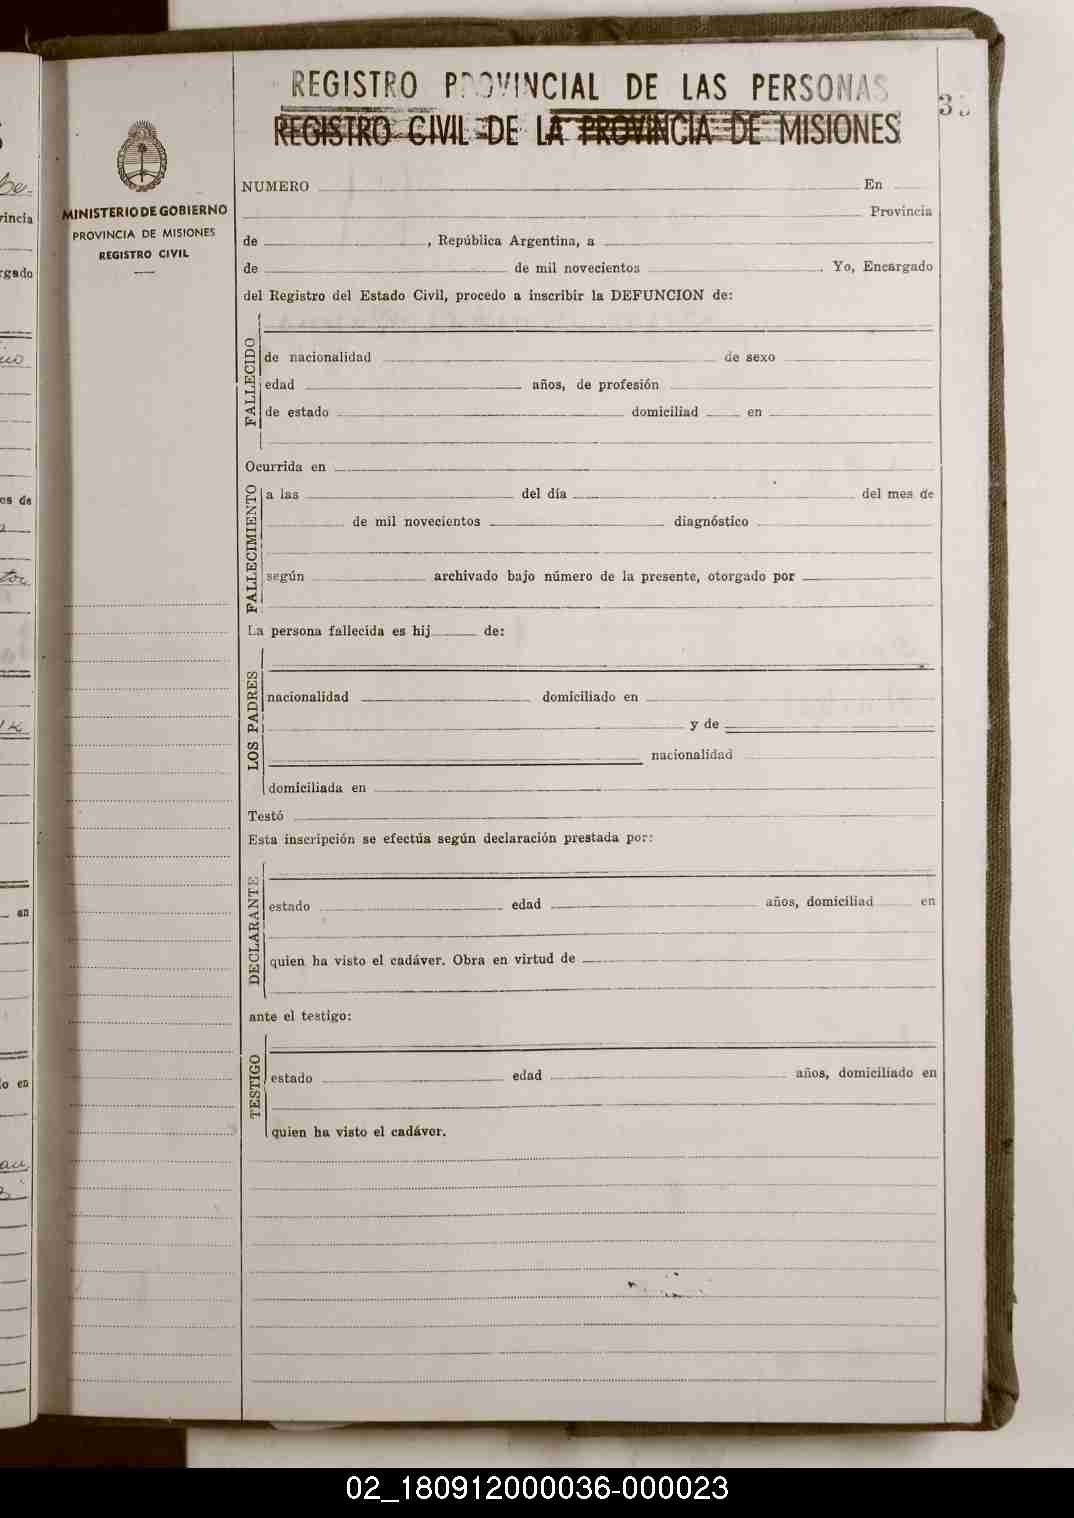 REGISTRO PROVINCIAL DE LAS PERSONAS
REGISTRO CIVIL DE LA PROVINCIA DE MISIONES
MINISTERIO DE GOBIERNO
PROVINCIA DE MISIONES
REGISTRO CIVIL
NUMERO En
Provincia
de , República Argentina, a
de de mil novecientos . Yo, Encargado
del Registro del Estado Civil, procedo a inscribir la DEFUNCION de:
FALLECIDO
de nacionalidad de sexo
edad años, de profesión
de estado domiciliad en
Ocurrida en
FALLECIMIENTO
a las del día del mes de
de mil novecientos diagnóstico
según archivado bajo número de la presente, otorgado por
La persona fallecida es hij de:
LOS PADRES
nacionalidad domiciliado en
y de
nacionalidad
domiciliada en
Testó
Esta inscripción se efectúa según declaración prestada por:
DECLARANTE
estado edad años, domiciliad en
quien ha visto el cadáver. Obra en virtud de
ante el testigo:
TESTIGO
estado edad años, domiciliado en
quien ha visto el cadáver.
02_180912000036-000023